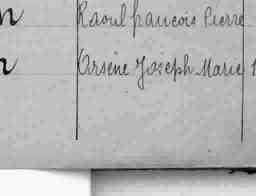 n Raoul francois Pierre
n Arsène Joseph Marie